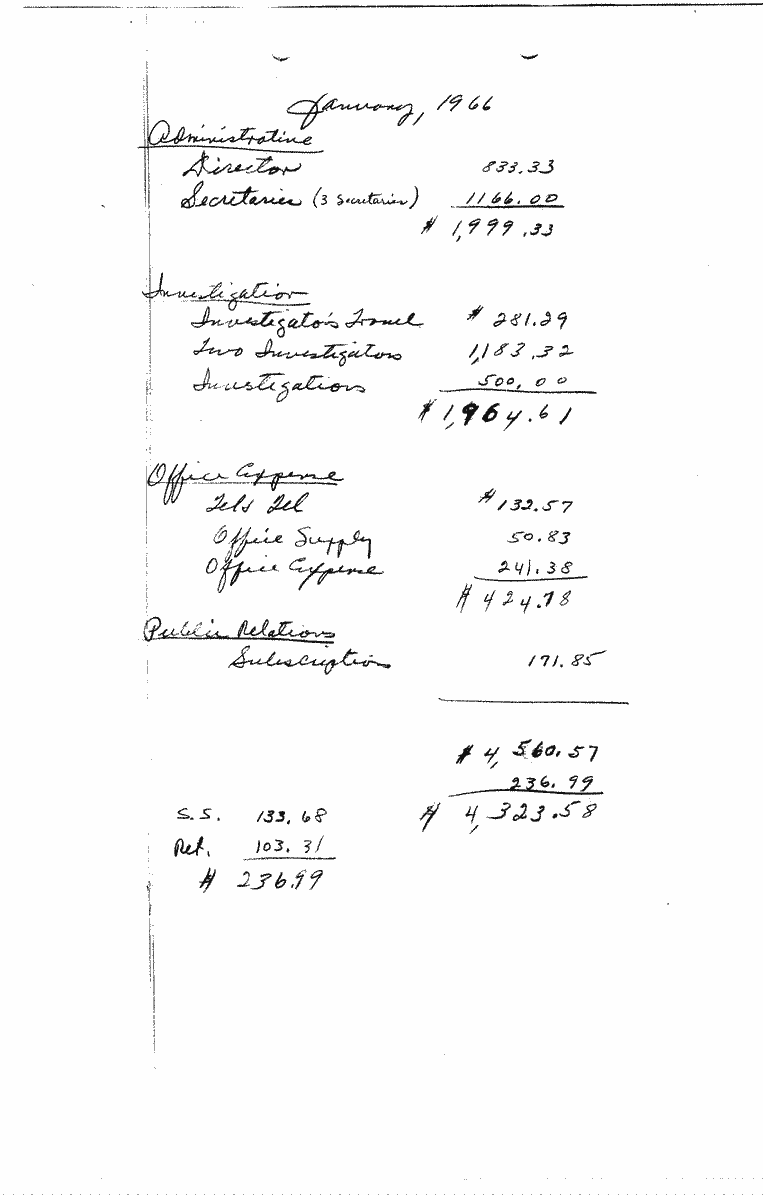 January, 1966
Administrative
Director 833.33
Secretaries (3 Secretaries) 1166.00
$ 1,999.33
Investigation
Investigators Travel $ 281.29
Two Investigators 1,183.32
Investigations 500.00
$ 1,964.61
Office Expense
Tel & Tel $132.57
Office Supply 50.83
Office Expense 241.38
$ 424.78
Public Relations
Subscription 171.85
$ 4,560.57
236.99
S.S. 133.68 $ 4,323.58
Ret. 103.31
$ 236.99